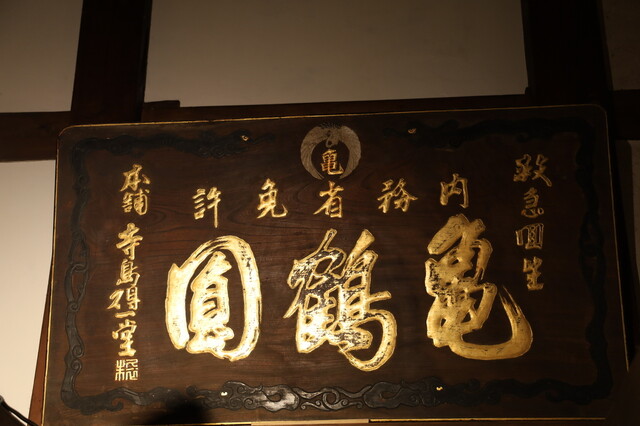 救急回生
亀
内務省免許
亀鶴圓
本舗 寺島得一堂